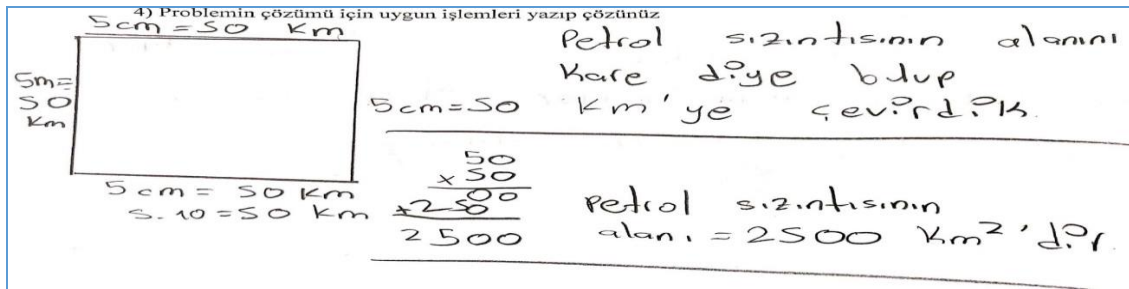 4) Problemin çözümü için uygun işlemleri yazıp çözünüz
5cm = 50 Km
5m =
50
Km
5 cm = 50 Km
5.10 = 50 Km
Petrol sızıntısının alanını
Kare diye bulup
5cm = 50 Km'ye çevirdik.
50
x 50
00
+250
2500
Petrol sızıntısının
alanı = 2500 Km²'dir.